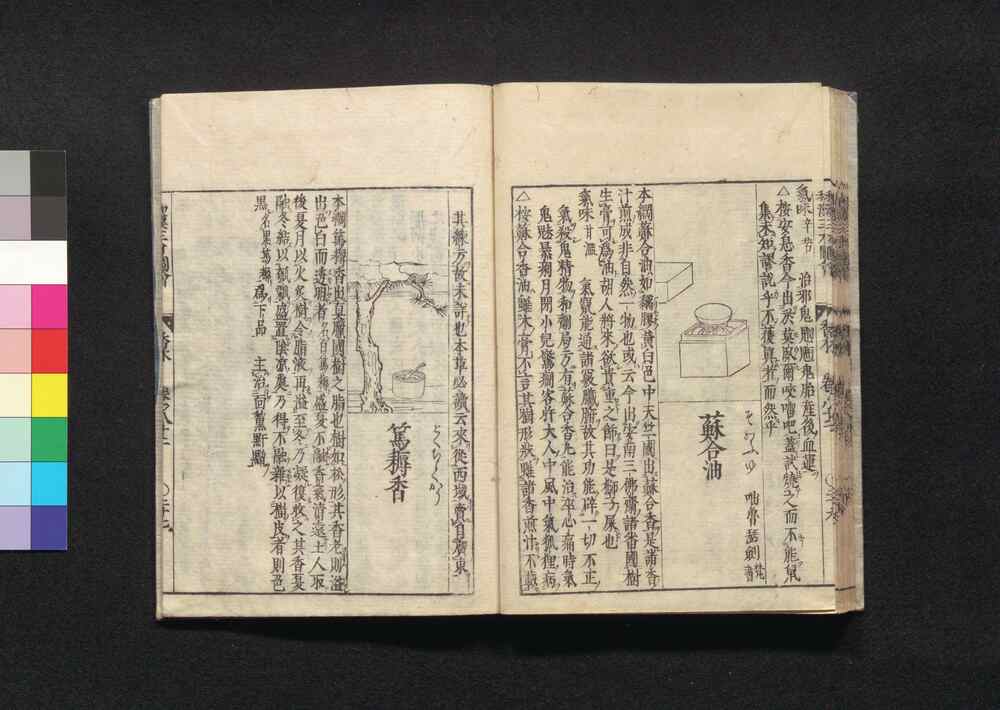 氣味辛苦 治邪鬼魍魎鬼胎産後血運
△按安息香今出於莫臥爾咬𠺕吧蓋試燒之而不能鼠
集未知謬説乎不獲真者而然乎
蘇合油
そがふゆ
咄魯瑟劍 梵書
本綱蘇合油如黐膠黄白色中天竺國出蘇合香是諸香
汁煎成非自然一物也或云今出安南三佛齋諸畨國樹
生膏可爲油胡人將來欲貴重之飾曰是獅子屎也
氣味甘温 氣竄能通諸竅臟腑故其功能辟一切不正
氣殺鬼精物和劑局方有蘇合香丸能治卒心痛時氣
鬼魅暴痢月閉小兒驚癇客忤大人中風中氣狐狸病
△按蘇合香油雖木膏不言其樹形狀雖諸香煎汁不載
其煉方故未詳也本草必讀云來從西域賣自廣東
篤耨香
とくじくかう
本綱篤耨香出真臘國樹之脂也樹如松形其香老則溢
出色白而透明者名白篤耨盛夏不融香氣清遠土人取
後夏月以火炙樹令脂液再溢至冬乃凝復收之其香夏
融冬結以瓠瓢盛置陰凉處乃得不融雜以樹皮者則色
黒名黒篤耨爲下品 主治面黧䵟𪒟